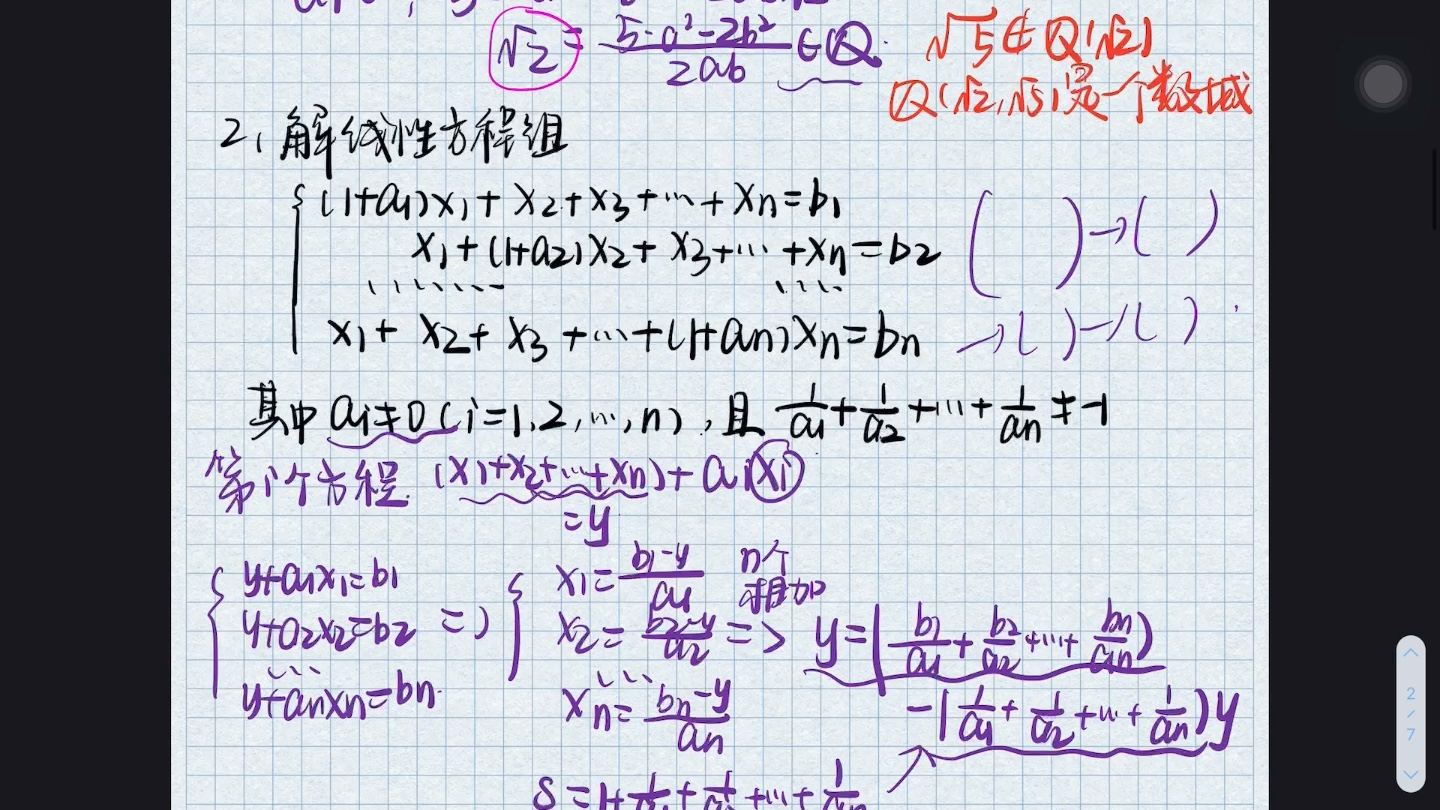 √2 = (5-a²-2b²)/(2ab) ∈ Q.
√5 ∉ Q(√2)
Q(√2,√5)是一个数域
2、解线性方程组
(1+a₁)x₁ + x₂ + x₃ + ... + xₙ = b₁
x₁ + (1+a₂)x₂ + x₃ + ... + xₙ = b₂
...... ....
x₁ + x₂ + x₃ + ... + (1+aₙ)xₙ = bₙ
( ) → ( )
→ ( ) → ( )
其中 aᵢ≠0 (i=1,2,...,n),且 1/a₁ + 1/a₂ + ... + 1/aₙ ≠ -1
第i个方程 (x₁+x₂+...+xₙ) + aᵢxᵢ
= y
y+a₁x₁=b₁
y+a₂x₂=b₂
...
y+aₙxₙ=bₙ
=>
x₁ = (b₁-y)/a₁
x₂ = (b₂-y)/a₂
...
xₙ = (bₙ-y)/aₙ
n个
相加
=> y = (b₁/a₁ + b₂/a₂ + ... + bₙ/aₙ)
- (1/a₁ + 1/a₂ + ... + 1/aₙ)y
S = 1 + 1/a₁ + 1/a₂ + ... + 1/aₙ
2
/
7